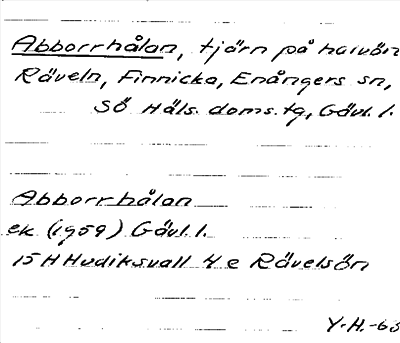 Abborrhålan, tjärn på halvön
Räveln, Finnicka, Enångers sn,
Sö Häls. doms.tg, Gävl. l.
Abborrhålan
ek (1959) Gävl. l.
15 H Hudiksvall 4 e Rävelsön
Y.H.-63